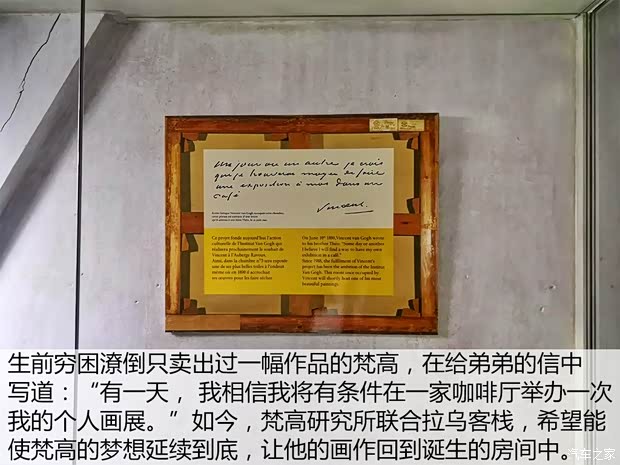 Un jour ou un autre je crois
que je trouverai moyen de faire
une exposition à moi dans un
café
Vincent
Ce projet fonde aujourd'hui l'action
culturelle de l'Institut Van Gogh qui
réalisera prochainement le souhait de
Vincent à l'Auberge Ravoux.
Ainsi, dans la chambre n°5 sera exposée
une de ses plus belles toiles à l'endroit
même où en 1890 il accrochait
ses œuvres pour les faire sécher.
On June 10th 1890, Vincent van Gogh wrote
to his brother Theo, "Some day or another
I believe I will find a way to have my own
exhibition in a café."
Since 1988, the fulfilment of Vincent's
project has been the ambition of the Institut
Van Gogh. This room once occupied by
Vincent will shortly host one of his most
beautiful paintings.
生前穷困潦倒只卖出过一幅作品的梵高，在给弟弟的信中
写道：“有一天，我相信我将有条件在一家咖啡厅举办一次
我的个人画展。”如今，梵高研究所联合拉乌客栈，希望能
使梵高的梦想延续到底，让他的画作回到诞生的房间中。
汽车之家